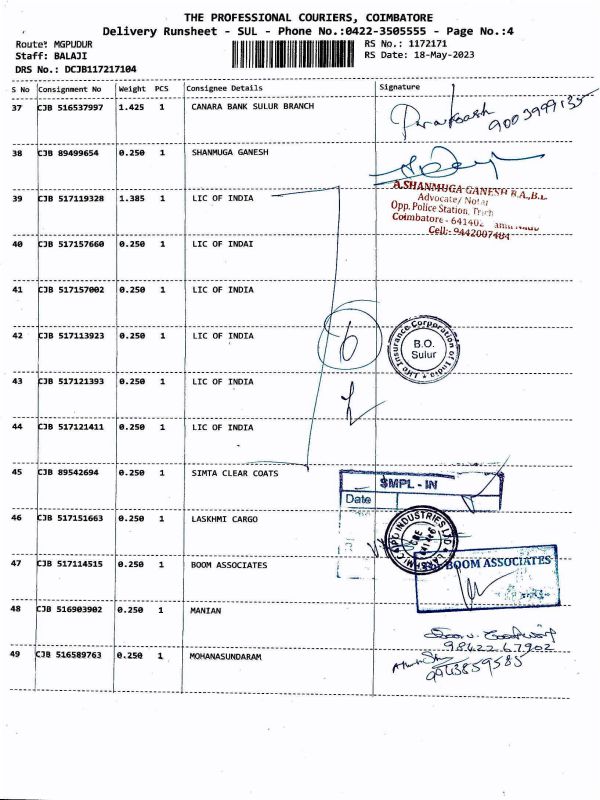 THE PROFESSIONAL COURIERS, COIMBATORE
Delivery Runsheet - SUL - Phone No.:0422-3505555 - Page No.:4
Route: MGPUDUR
RS No.: 1172171
Staff: BALAJI
RS Date: 18-May-2023
DRS No.: DCJB117217104
S No Consignment No Weight PCS Consignee Details Signature
37 CJB 516537997 1.425 1 CANARA BANK SULUR BRANCH
Prakash 9003999135
38 CJB 89499654 0.250 1 SHANMUGA GANESH
A.SHANMUGA GANESH B.A.,B.L.
Advocate/ Notar
Opp. Police Station, Trich
Coimbatore - 641402
Cell:- 9442007484
39 CJB 517119328 1.385 1 LIC OF INDIA
40 CJB 517157660 0.250 1 LIC OF INDAI
41 CJB 517157002 0.250 1 LIC OF INDIA
42 CJB 517113923 0.250 1 LIC OF INDIA
6
Life Insurance Corporation of India
B.O.
Sulur
43 CJB 517121393 0.250 1 LIC OF INDIA
44 CJB 517121411 0.250 1 LIC OF INDIA
45 CJB 89542694 0.250 1 SIMTA CLEAR COATS
SMPL - IN
Date
46 CJB 517151663 0.250 1 LASKHMI CARGO
47 CJB 517114515 0.250 1 BOOM ASSOCIATES
BOOM ASSOCIATES
48 CJB 516903902 0.250 1 MANIAN
9842267902
49 CJB 516589763 0.250 1 MOHANASUNDARAM